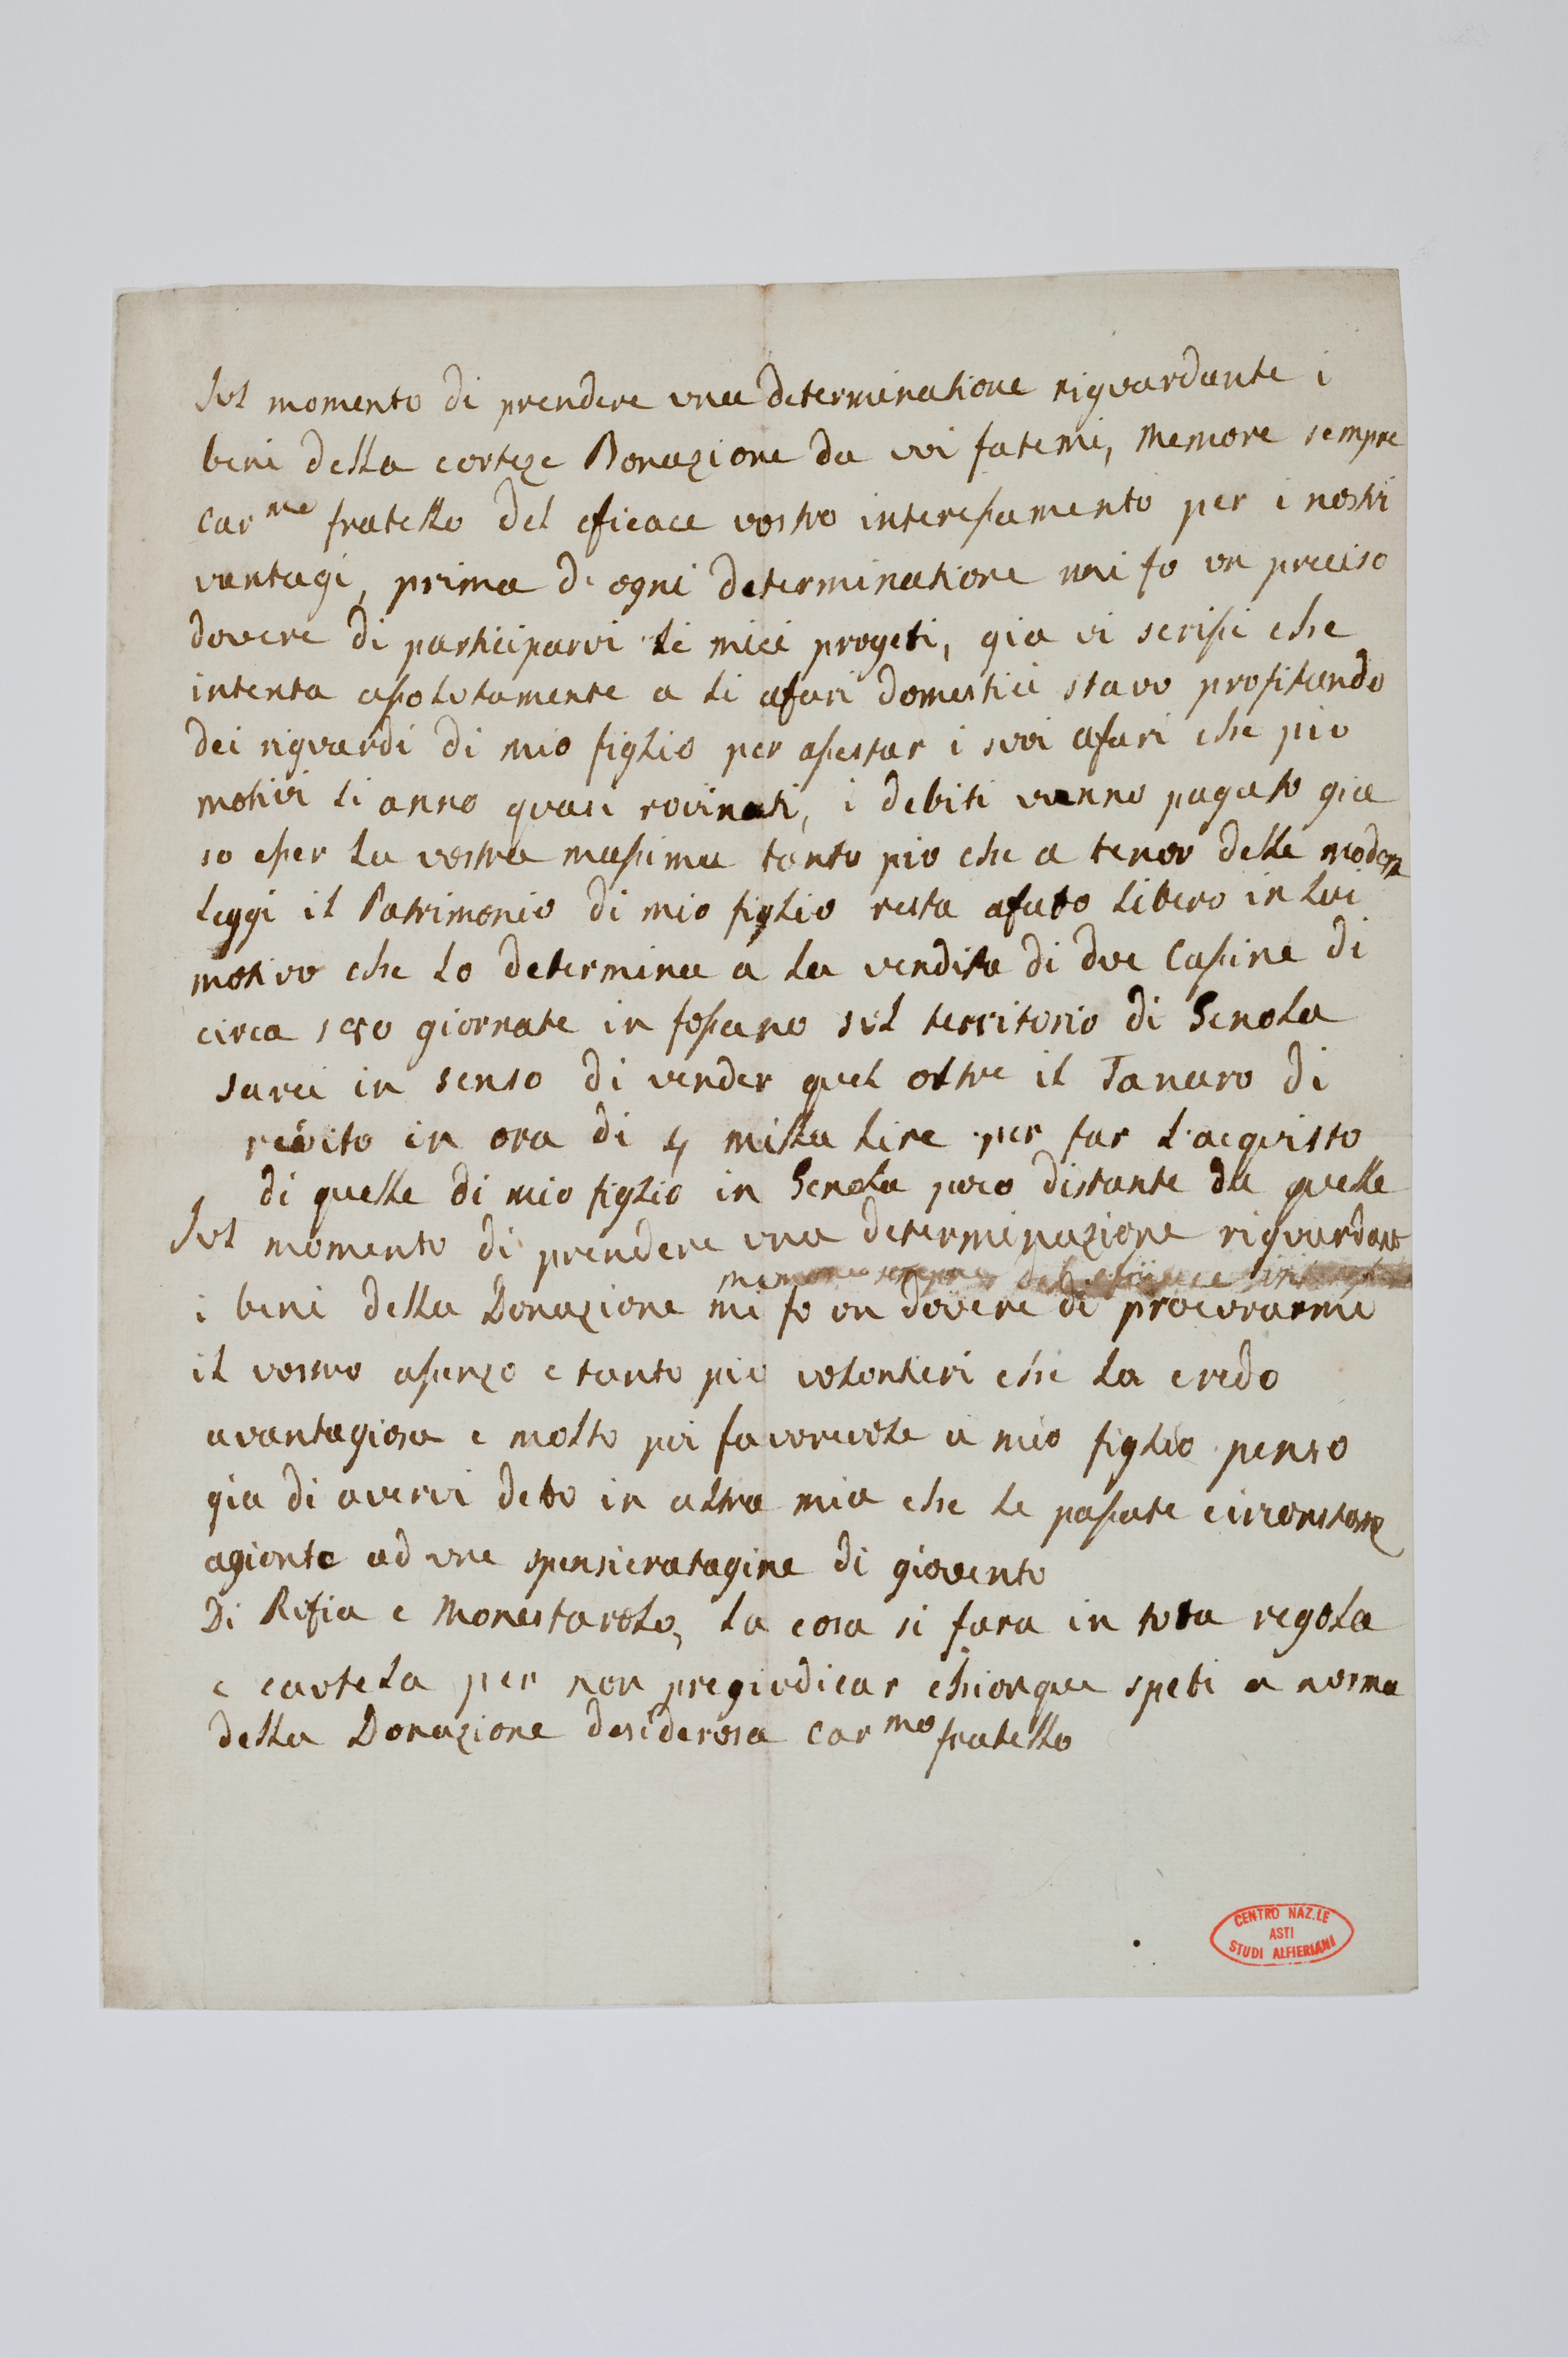 Sul momento di prendere una determinatione riguardante i
beni della corteze Donazione da voi fatemi, Memore sempre
Car.mo fratello del eficace vostro interessamento per i nostri
vantagi, prima di ogni determinatione mi fo un preciso
dovere di participarvi li miei progeti, gia vi scrissi che
intenta assolutamente a li afari domestici stavo profitando
dei riguardi di mio figlio per assestar i suoi afari che piu
motivi li anno quasi rovinati, i debiti vanno pagato gia
so esser la vostra massima tanto piu che a tenor delle modern
leggi il Patrimonio di mio figlio resta afatto libero in lui
motivo che lo determina a la vendita di due Cassine di
circa giornate in fossano sul territorio di Genola
sarei in senso di vender quel oltre il Tanaro di
redito in ora di 4 milla lire per far l'acquisto
di quelle di mio figlio in Genola poco distante da quelle
Sul momento di prendere una determinazione riguardant
memore sempre del eficace
i beni della Donazione mi fo un dovere di procurarmi
il vostro assenzo e tanto piu volontieri che la credo
avantagiosa e molto piu favorevole a mio figlio penso
gia di avervi detto in altra mia che le passate circonstanze
agionte ad une spensieratagine di gioventu
Di Refia e Monestarolo, la cosa si fara in tutta regola
e cautela per non pregiudicar chionque speti a norma
della Donazione desiderosa Car.mo fratello
CENTRO NAZ.LE
ASTI
STUDI ALFIERIANI